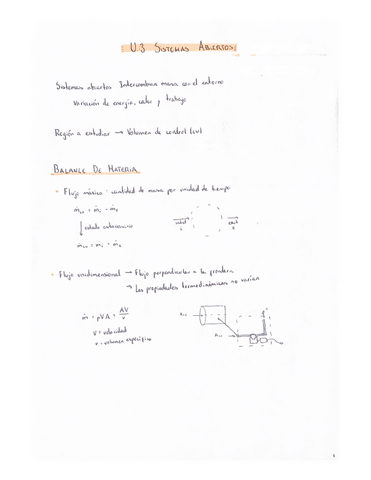 U.3 SISTEMAS ABIERTOS
Sistemas abiertos Intercambian masa con el entorno
Variación de energía, calor y trabajo
Región a estudiar → Volumen de control (cv)
BALANCE DE MATERIA
- Flujo másico: cantidad de masa por unidad de tiempo
ṁcv = ṁi - ṁe
↓ estado estacionario
- Flujo unidimensional → Flujo perpendicular a la frontera
→ Las propiedades termodinámicas no varían
ṁ = ρVA = AV/v
V = velocidad
v = volumen específico